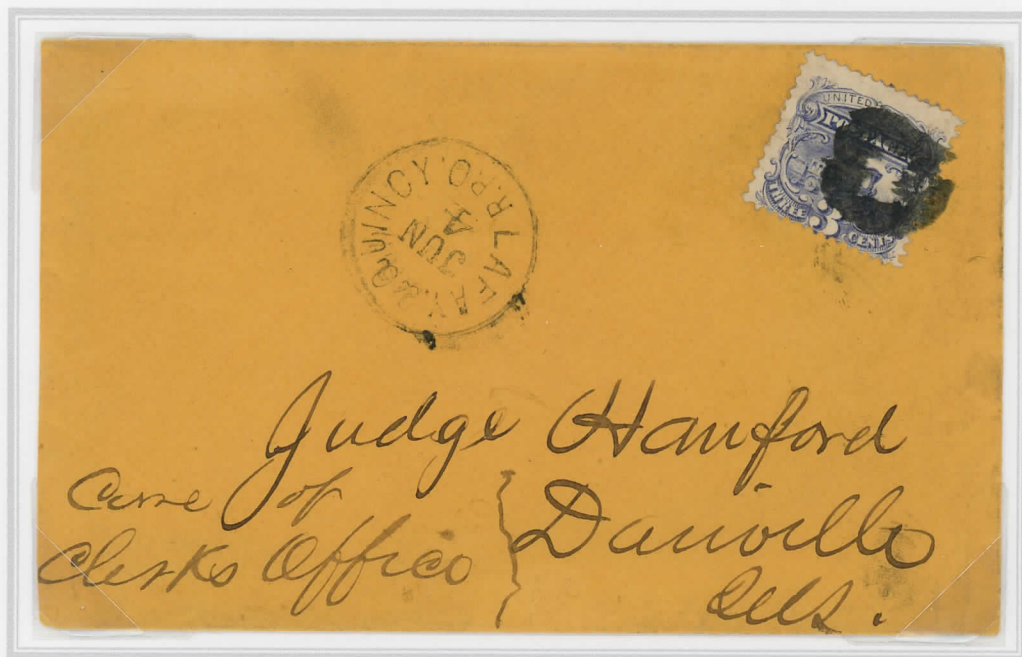 UNITED
POSTAGE
3
CENTS
LAFAY. & QUINCY. R.R.P.O.
JUN
4
Judge Hanford
Care of
Clerks Office
Danville
Ills.